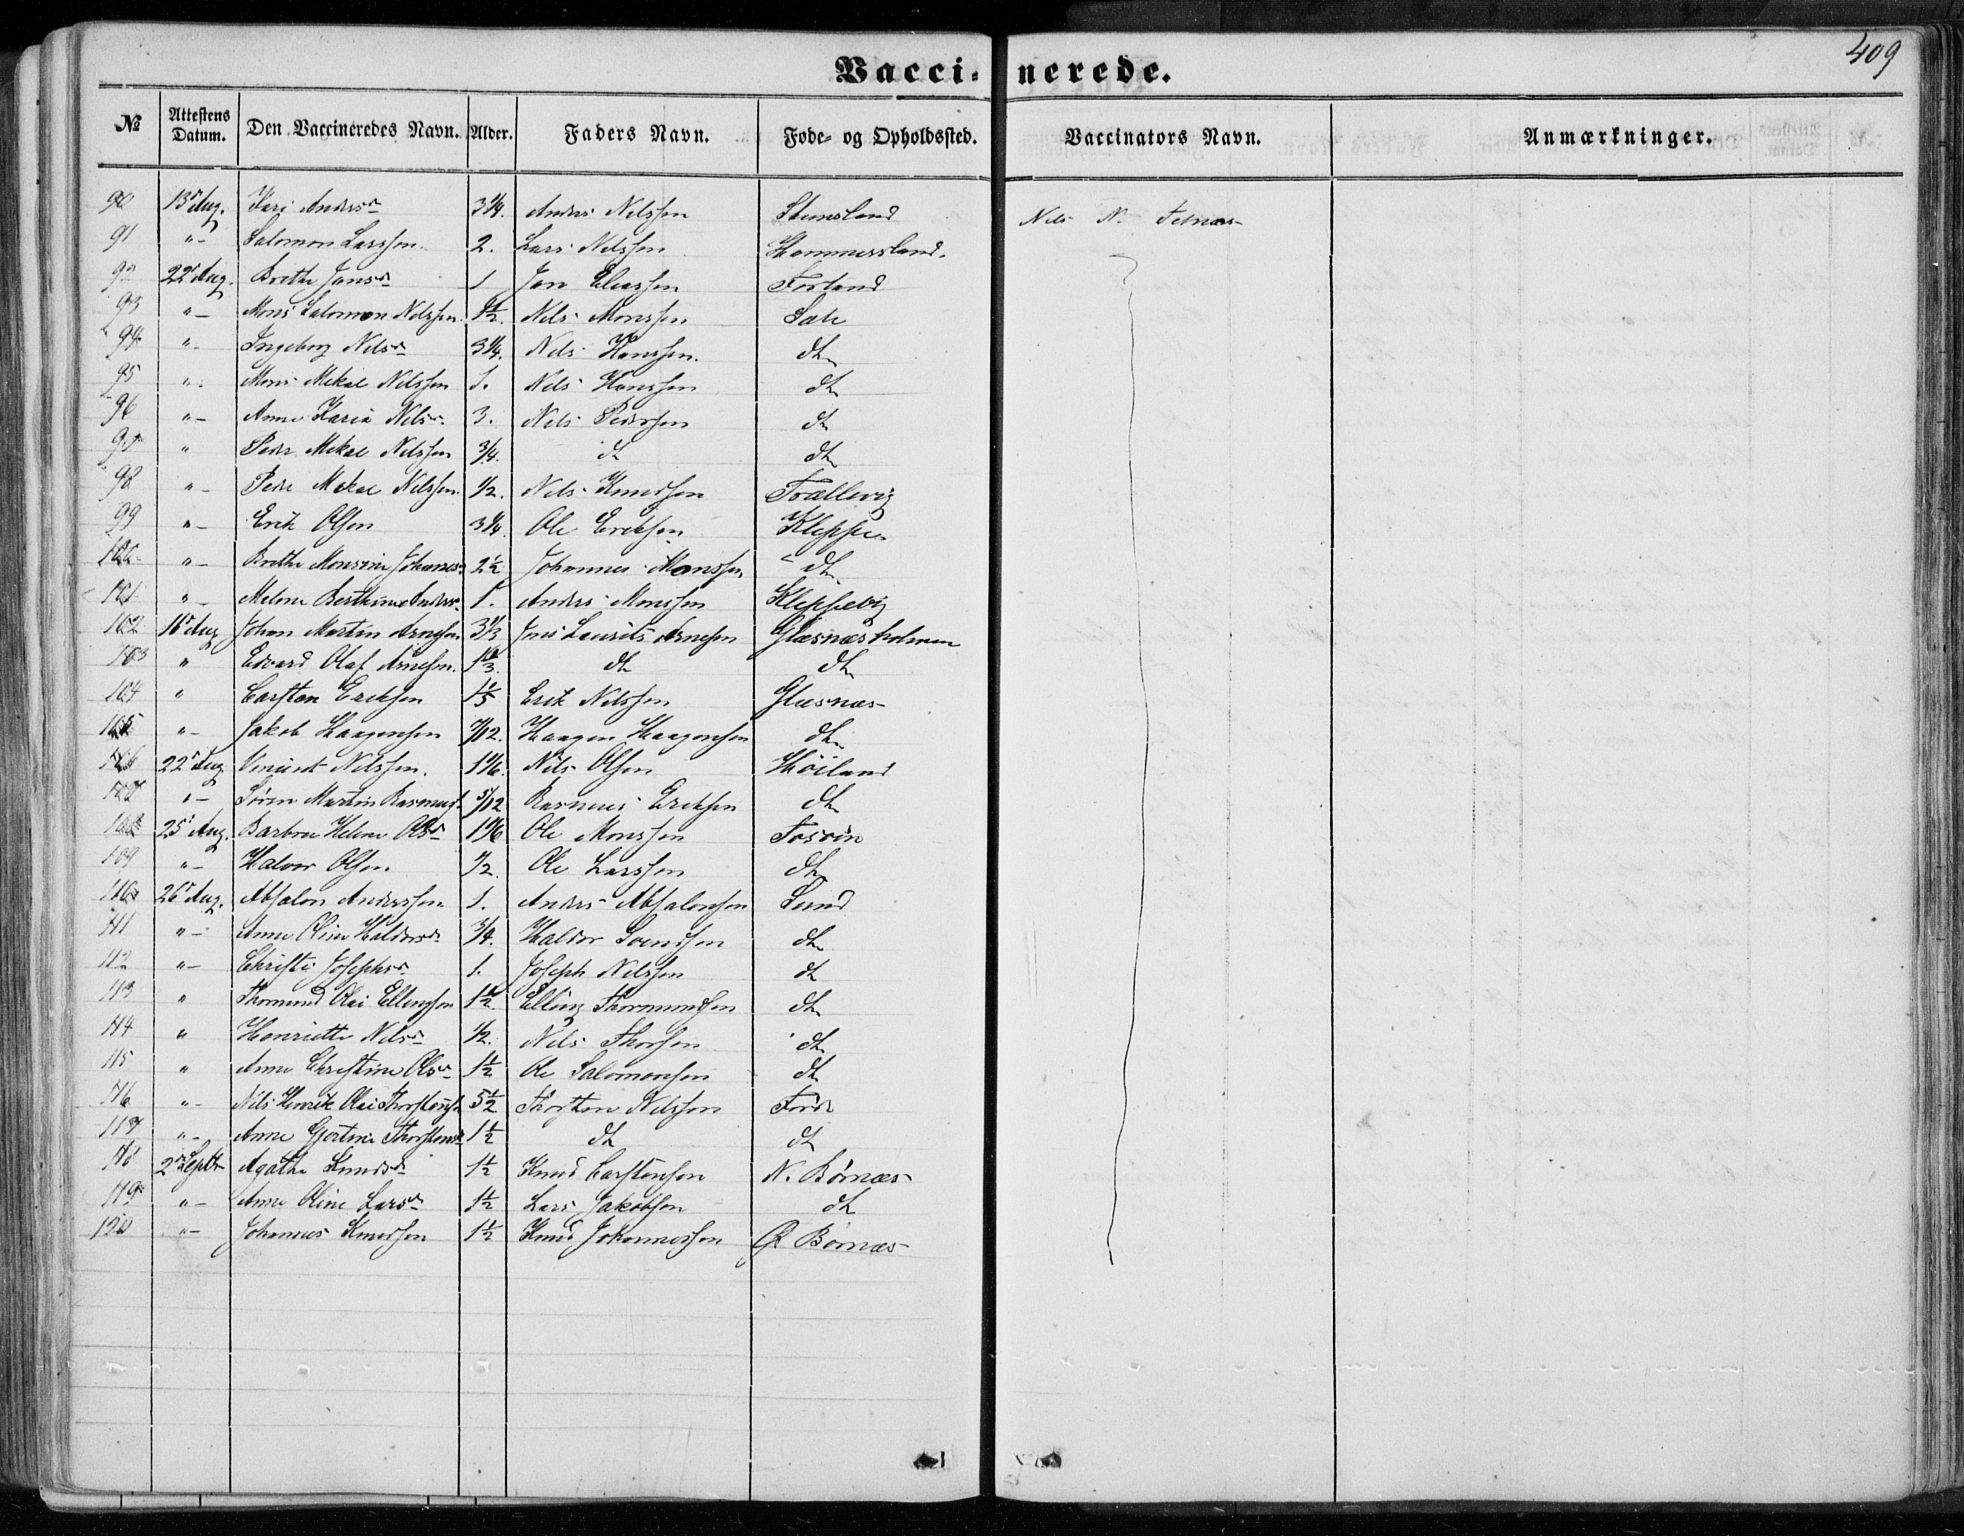 409
Vacci- nerede.
№ Attestens Datum. Den Vaccineredes Navn. Alder. Faders Navn. Føde- og Opholdssted. Vaccinators Navn. Anmærkninger.
90 13 Aug. Kari Andersd 3¼. Anders Nilssen Stemsland Nils N.
91 "- Salomon Larssen. 2. Lars Nilssen Hammersland.
92 22 Aug. Brithe Jansd 1 Jan Eliassen Forland
93 "- Mons Salomon Nilssen. 1½. Nils Monssen Sæle
94 "- Ingeborg Nilsd 3¼. Nils Hanssen. dt
95 "- Mons Mikal Nilssen 1. Nils Hanssen dt
96 "- Anne Karia Nilsd. 3. Nils Pederssen dt
97 " Peder Mikal Nilssen ¾. dt dt
98 "- Peder Mikal Nilssen. ½. Nils Knudssen Trællevig
99 "- Erik Olsen 3¼. Ole Eriksen Kleppe
100 "- Brithe Monsine Johannesd. 2½ Johannes Monssen dt
101 "- Melene Berthine Andersd. 1. Anders Monssen Kleppevig
102 16 Aug Johan Martin Arnesen. 3⅓ Jens Laurits Arnesen Glæsnæsholmen
103 " Edvard Olaf Arnesen. dt dt
104 " Carsten Eriksen 1⅕ Erik Nilssen Glæsnæs
105 "- Jakob Haagensen 7/12. Haagen Haagensen dt
106 22 Aug Vincent Nilssen. 1⅙. Nils Olsen Høiland
107 "- Søren Martin Rasmuss. 5/12 Rasmus Eriksen dt
108 25 Aug. Barbra Helene Olsd 1⅙ Ole Monssen Tosøin
109 "- Halvor Olsen. ½. Ole Larssen dt
110 26 Aug. Absalon Anderssen 1. Anders Absalonsen Lund
111 "- Anne Oline Haldorsd. ¾. Haldor Svendsen dt
112 "- Christi Josephsd. 1. Joseph Nilssen dt
113 " Thormund Olai Ellingsen 1½. Elling Thormundsen dt
114 " Henriette Nilsd ½. Nils Thorsen dt
115 " Anne Christine Olsd 1½ Ole Salomonsen dt
116 "- Nils Henrik Olai Thorstenss. 5½ Thorsten Nilssen Førde
117 "- Anne Gjertine Thorstensd 1½ dt dt
118 2 Septbr Agathe Knudsd 1½ Knud Carstensen N. Børnæs
119 "- Anne Oline Larsd 1½ Lars Jakobsen dt
120 "- Johannes Knudsen 1½ Knud Johannessen Ø Børnæs